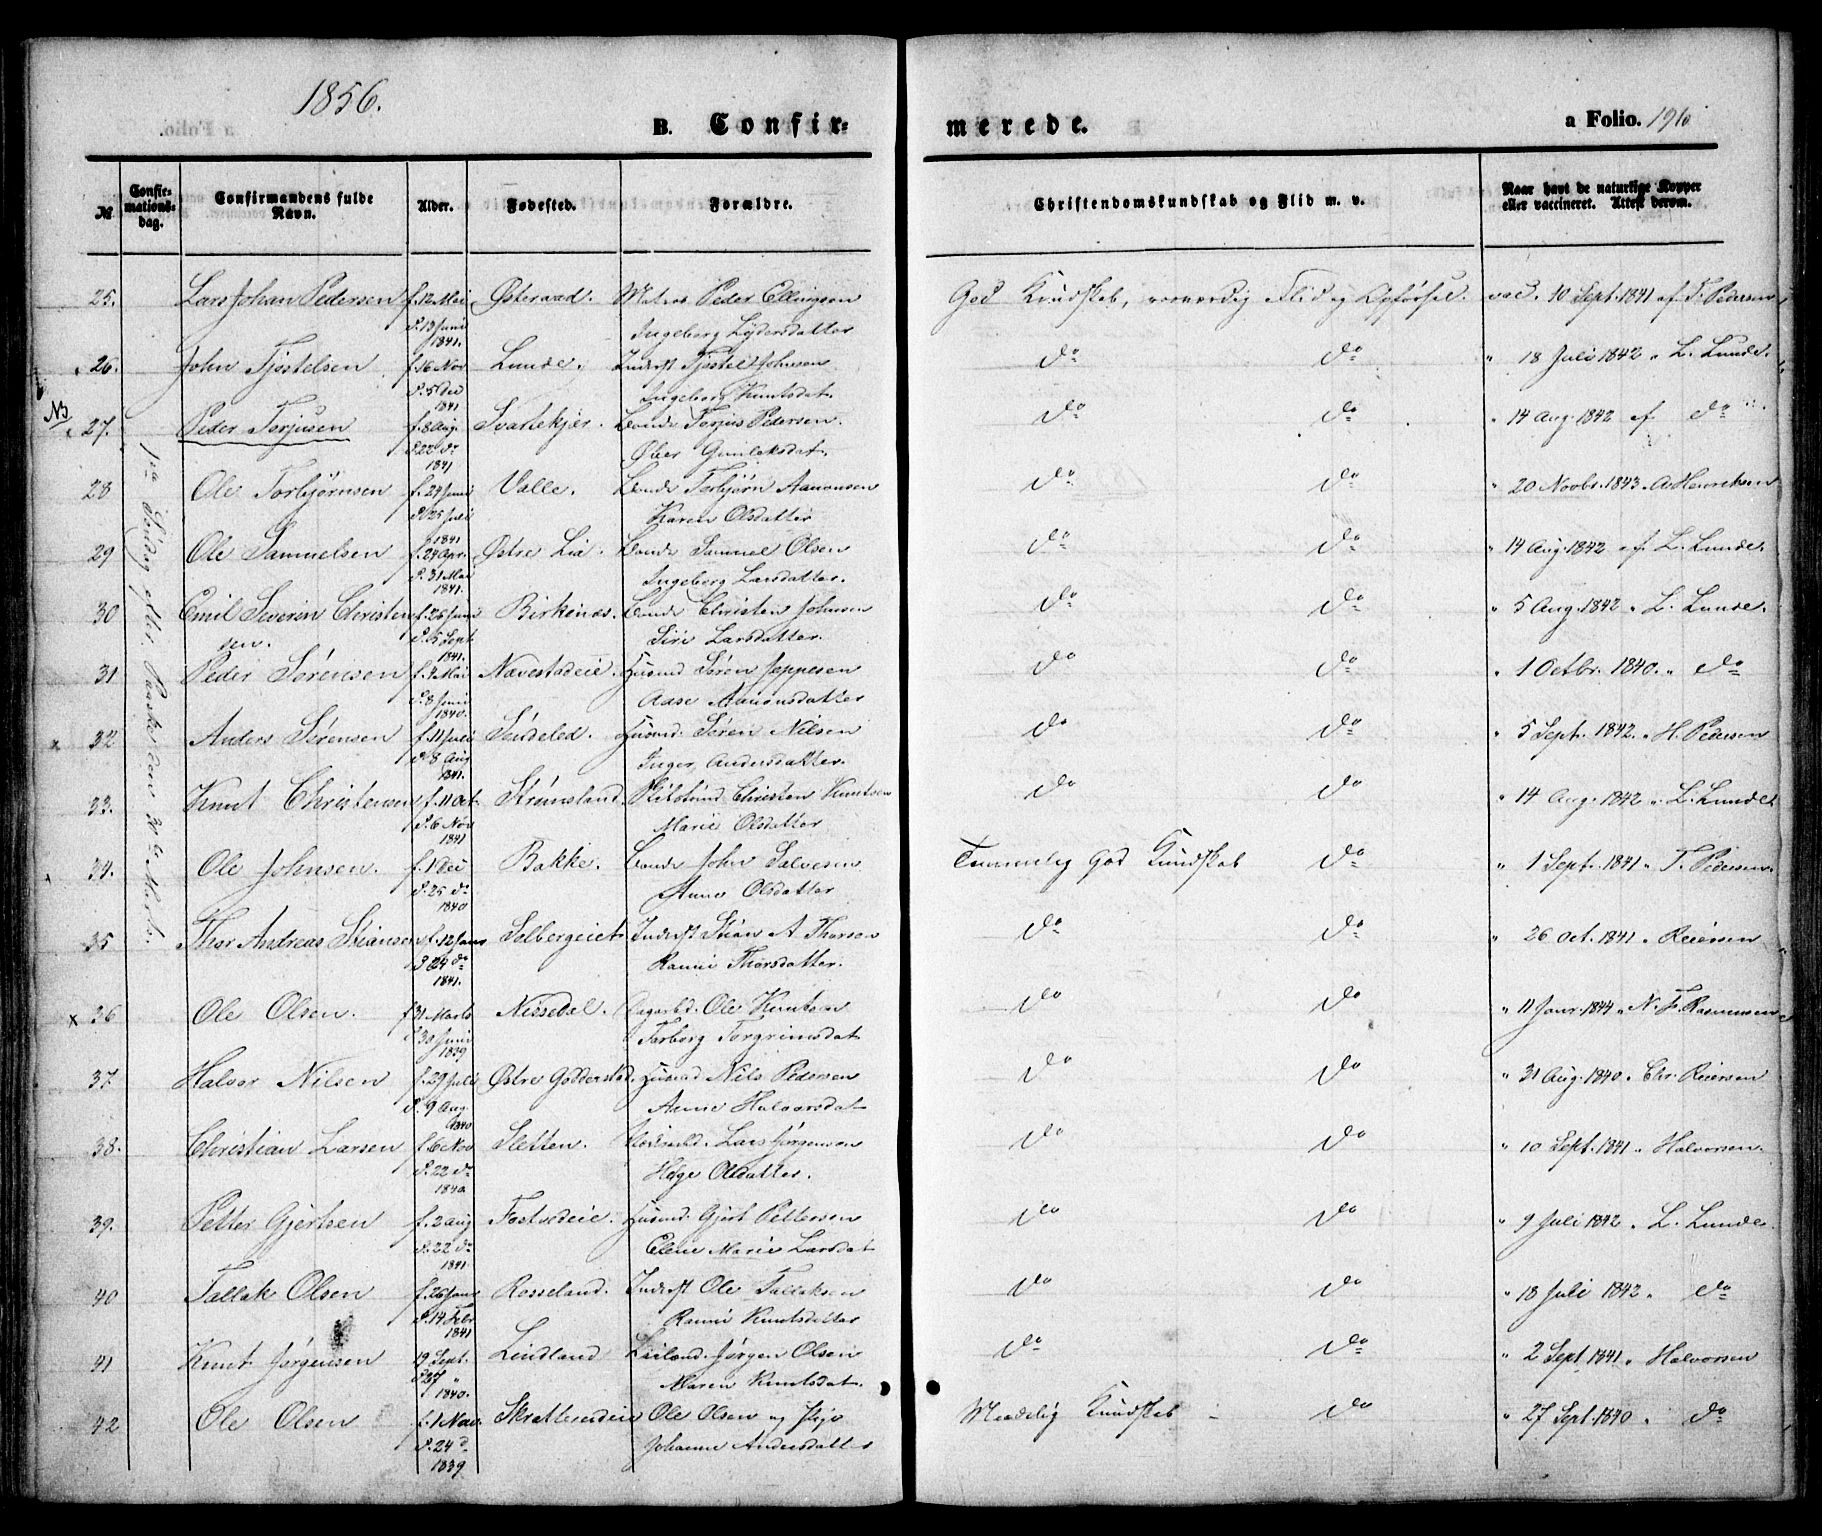 1856.
B. Confir- merede.
a Folio. 196
№
Confir-
mations-
dag.
Confirmandens fulde
Navn.
Alder.
Fødested.
Forældre.
Christendomskundskab og Flid m. v.
Naar havt de naturlige Kopper
eller vaccineret. Attest derom.
1ste Søndag efter Paaske den
25. Lars Johan Pedersen f. 12 Mai Østeraad. Matros Peder Ellingsen God Kundskab, Flid og Opførsel. vac. 10 Sept. 1841 af T. Pedersen
d. 13 Juni 1841. Ingeborg Lydersdatter
26. John Tjøstelsen f. 16 Nov Lunde. Inderst Tjøstel Johnsen do do " 18 Juli 1842 " L. Lunde.
d. 5 Dec 1841 Ingeborg Knutsdat.
NB 27. Peder Terjusen f. 8 Aug. Svartekjer. Bonde Terjus Pedersen. do do " 14 Aug 1842 af do
d. 22 do 1841 Gunlaksdat.
28 Ole Torbjørnsen f. 24 Juni Valle. Bonde Torbjørn Aanonsen do do " 20 Novbr. 1843 A. Henriksen
d. 25 Juli 1841 Karen Olsdatter
29 Ole Samuelsen f. 24 Apr. Østre Lia. Bonde Samuel Olsen do do " 14 Aug. 1842 af L. Lunde.
d. 31 Mai 1841. Ingeborg Larsdatter.
30 Emil Severin Christen- f. 26 Juni Birkenes. Bonde Christen Johnsen do do " 5 Aug. 1842 " L. Lunde.
sen. d. 5 Sept. 1841. Siri Larsdatter.
31 Peder Sørensen f. 4 Mai Navestadeie. Husmd Søren Jeppesen do do " 1 Octbr. 1840. " do
d. 8 Juni 1840. Aase Aanonsdatter
x 32 Anders Sørensen f. 11 Juli Søndeled. Husmd. Søren Nilsen do do " 5 Sept. 1842. " H. Pedersen
d. 8 Aug 1841. Inger Andersdatter.
33. Knut Christensen f. 11 Oct. Strømsland. Christen Knutsen do do " 14 Aug. 1842 " L. Lunde.
d. 6 Nov 1841 Marie Olsdatter
34. Ole Johnsen. f. 1 Dec Bakke. Bonde John Salvesen Temmelig God Kundskab do " 1 Sept. 1841 " T. Pedersen.
d. 25 do 1840 Anne Olsdatter
35 Thor Andreas Stiansen f. 12 Janr Solbergeiet Inderst Stian A. Thorsen do do " 26 Oct. 1841 " Reiersen
d. 24 do 1841. Ranni Thorsdatter.
x 36 Ole Olsen. f. 31 Marts Nissedal. Dagarbd. Ole Knutsen do do " 11 Janr. 1844 " N. F. Rasmussen
d. 30 Juni 1839 Torborg Torgrimsdat
37. Halvor Nilsen f. 29 Juli Østre Godderstad. Husmd Nils Pedersen do do " 31 Aug. 1840 " Chr. Reiersen
d. 9 Aug. 1840 Anne Halvorsdat
38. Christian Larsen f. 6 Nov Sletten. Lars Jørgensen do do " 10 Sept. 1841 " Halvorsen.
d. 22 do 1840. Helge Olsdatter.
39. Petter Gjertsen f. 2 Aug Fostvedeie. Husmd. Gjert Pettersen do do " 9 Juli 1842 " L. Lunde
d. 22 do 1841. Elene Marie Larsdat
40 Tallak Olsen f. 26 Janr Rosseland. Inderst Ole Tallaksen do do " 18 Juli 1842 " do
d. 14 Febr 1841 Ranni Knutsdatter
41 Knut Jørgensen 19 Sept. Lindland Leilænd. Jørgen Olsen do do " 2 Sept 1841 " Halvorsen
d. 27 " 1840. Maren Knutsdat.
42 Ole Olsen f. 1 Nov. Skrattereideie Ole Olsen og Pige Maadelig Kundskab - do " 27 Sept. 1840 " do
d. 24 d. 1839 Johanne Andersdatter